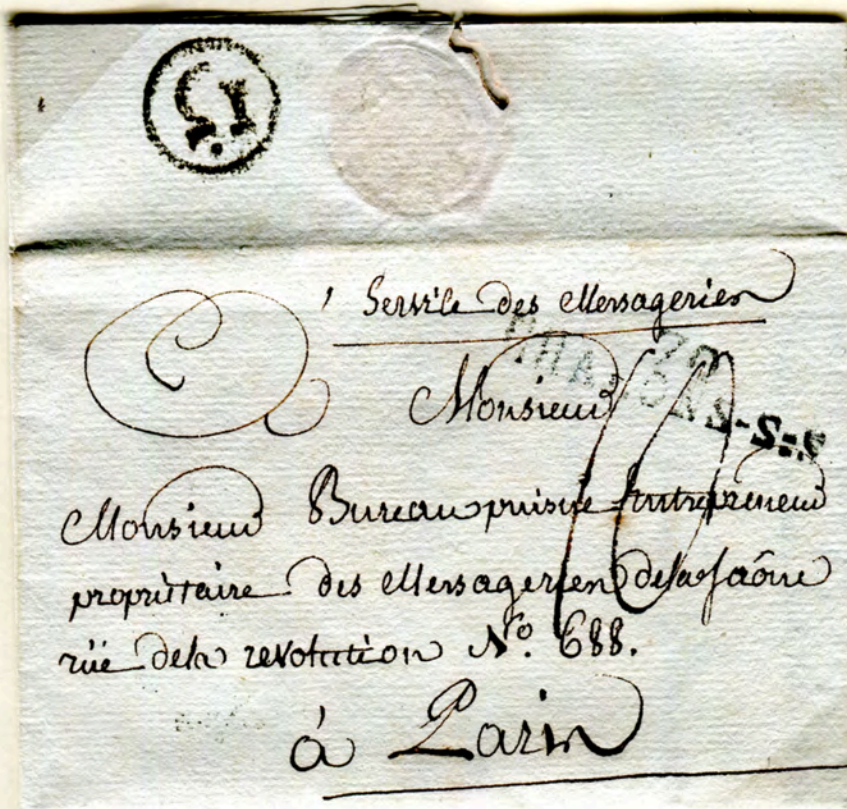 15
Service des Messageries
70
CHALONS-S-S
Monsieur
10
Monsieur Bureau puisné Entrepreneur
propriétaire des Messageries de la Saône
rüe de la revolution N.º 688.
à Paris